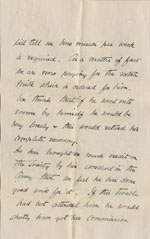 Will tell us how much per week
is required. As a matter of fact
we are now paying for the extra
milk which is ordered for him.
We think that if he went into
rooms by himself he would be
very lonely & this would retard his
complete recovery.
He has brought so much credit on
the Society by his conduct in the
Army that we feel he has done
good work for it. If this trouble
had not attained him he would
shortly have got his Commission